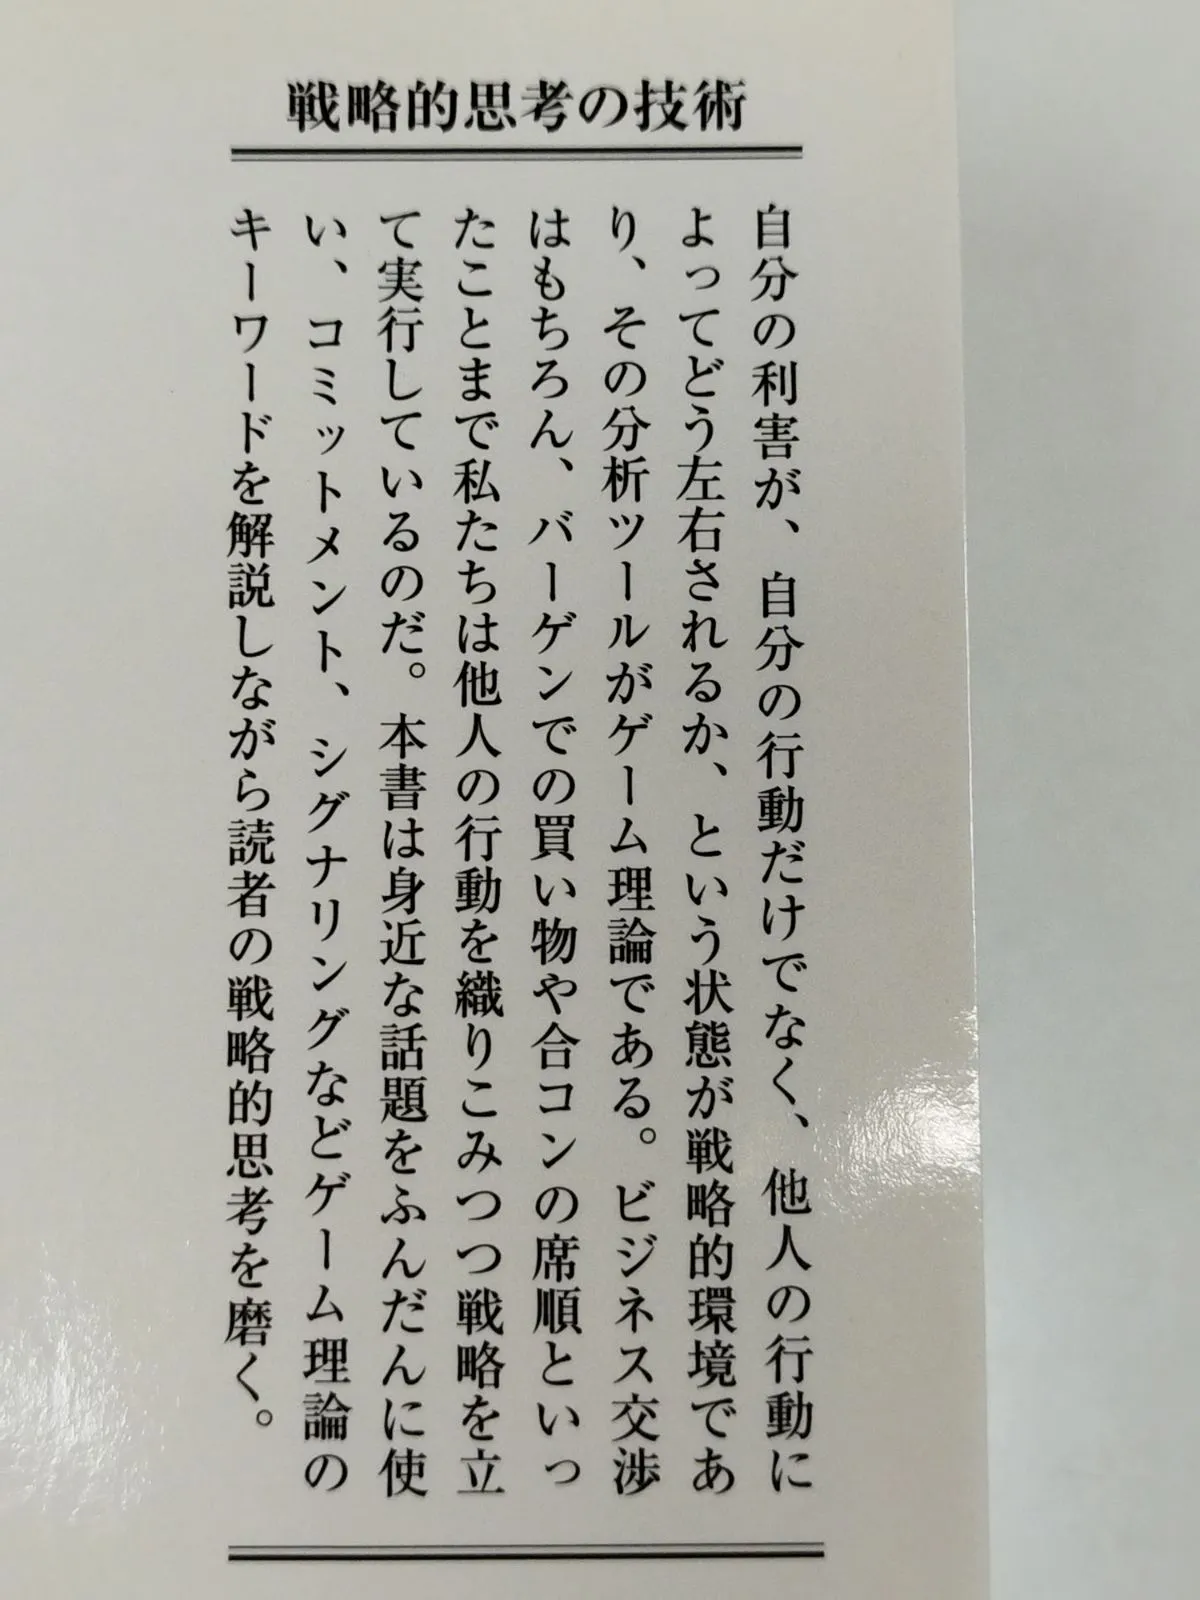 戦略的思考の技術
自分の利害が、自分の行動だけでなく、他人の行動に
よってどう左右されるか、という状態が戦略的環境であ
り、その分析ツールがゲーム理論である。ビジネス交渉
はもちろん、バーゲンでの買い物や合コンの席順といっ
たことまで私たちは他人の行動を織りこみつつ戦略を立
て実行しているのだ。本書は身近な話題をふんだんに使
い、コミットメント、シグナリングなどゲーム理論の
キーワードを解説しながら読者の戦略的思考を磨く。